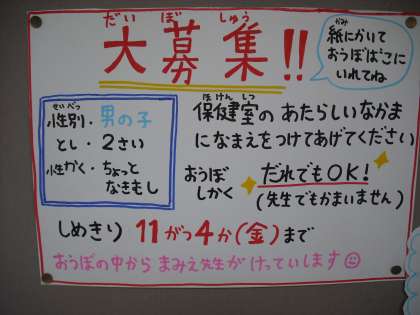 だい ぼ しゅう
大募集!!
かみ
紙にかいて
おうぼばこに
いれてね
せいべつ
性別・男の子
とし・2さい
性かく・ちょっと
なきむし
ほけんしつ
保健室の あたらしいなかま
になまえをつけてあげてください
おうぼ
しかく
だれでもOK!
(先生でもかまいません)
しめきり 11がつ4か(金)まで
おうぼの中から まみえ先生が けっていします